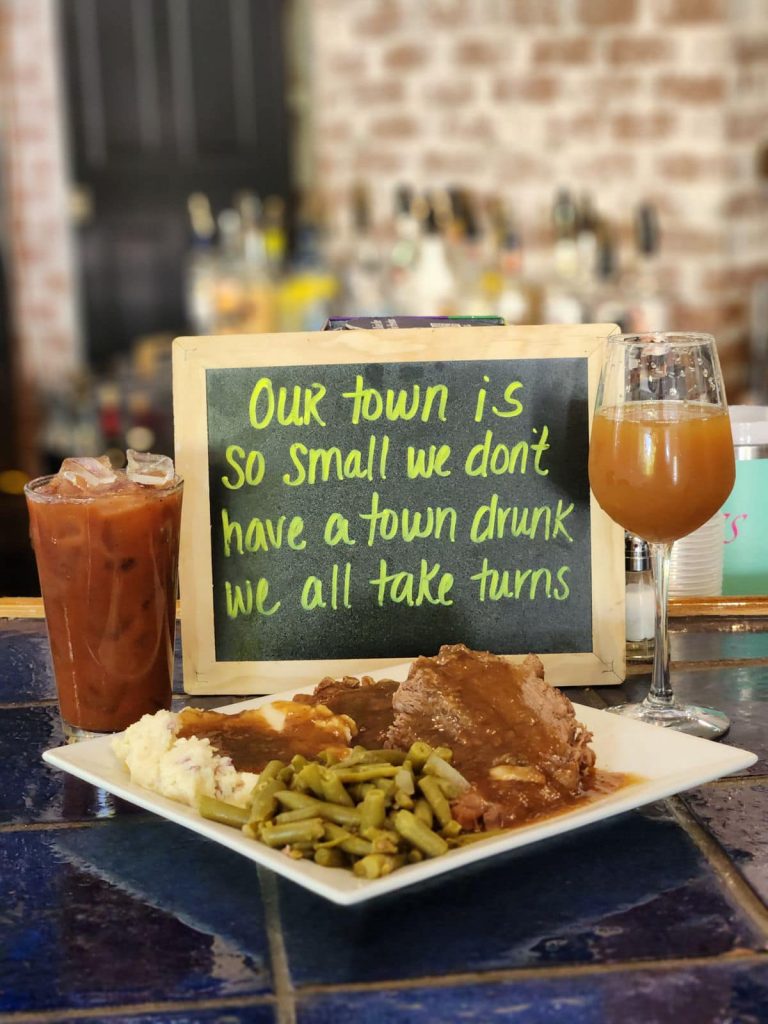 Our town is
so small we don't
have a town drunk
we all take turns